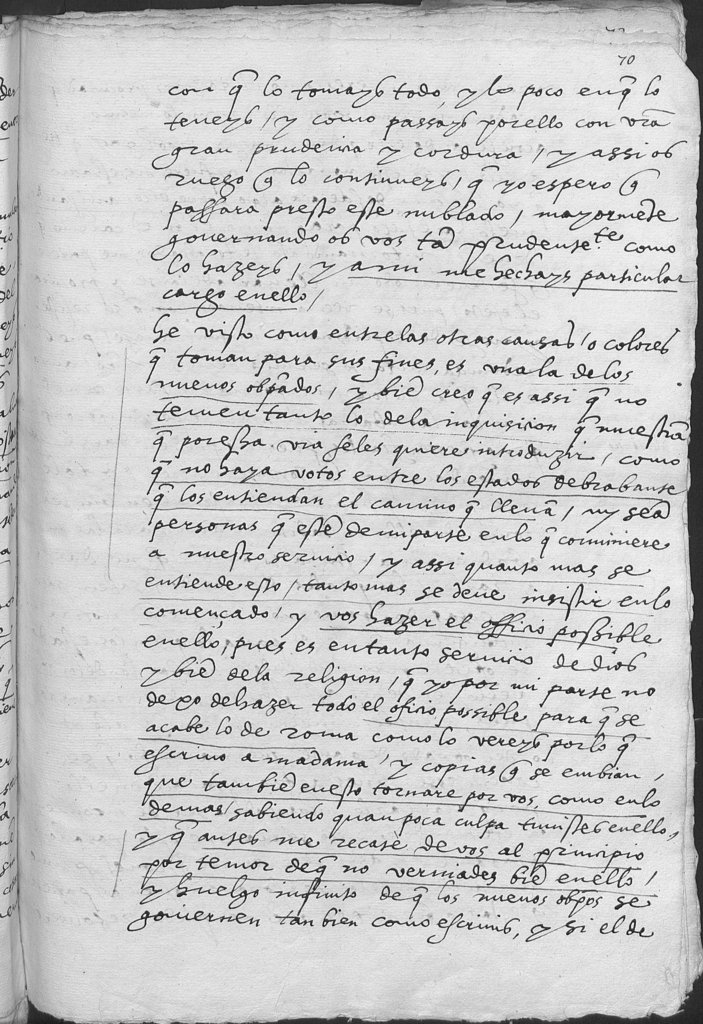 70
con q̃ lo tomays todo, y lo poco en q̃ lo
teneys / y como passays por ello con vrã
gran prudencia y cordura / y assi os
ruego q̃ lo continueys / q̃ yo espero q̃
passara presto este nublado / mayormẽte
gouernando os vos tã prudente.te como
lo hazeys / y a mi me hechays particular
cargo en ello /
he visto como entre las otras causas / o colores
q̃ toman para sus fines, es vña la de los
nueuos obpãdos / y biẽ creo q̃ es assi q̃ no
temen tanto lo de la inquisicion q̃ muestrã
q̃ por essa via se les quiere introduzir / como
q̃ no haya votos entre los estados de brabante
q̃ los entiendan el camino q̃ lleuã / ny seã
personas q̃ estẽ de mi parte en lo q̃ conuiniere
a nuestro seruicio / y assi quanto mas se
entiende esto / tanto mas se deue insistir en lo
començado / y vos hazer el officio possible
en ello, pues es en tanto seruicio de dios
y biẽ de la religion / q̃ yo por mi parte no
dexo de hazer todo el oficio possible para q̃ se
acabe lo de roma como lo vereys por lo q̃
escriuo a madama / y copias q̃ se embian /
que tambiẽ en esto tornare por vos, como en lo
demas / sabiendo quan poca culpa tuuistes en ello,
y q̃ antes me recate de vos al principio
por temor de q̃ no verniades biẽ en ello /
y huelgo infinito de q̃ los nueuos obpos se
gouiernen tan bien como escriuis, y si el de